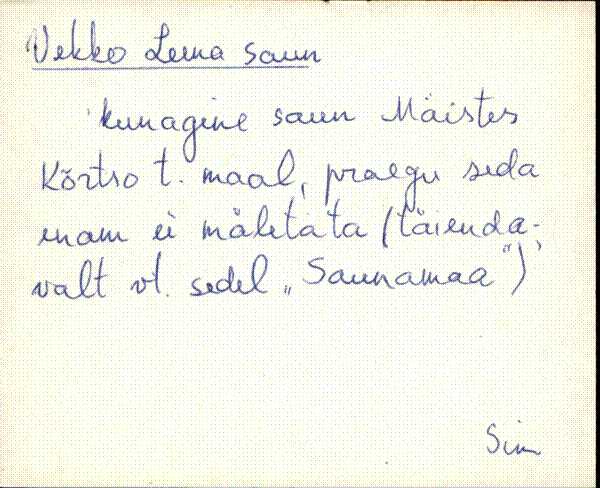 Vekko Leena saun
kunagine saun Mäistes
Kõrtso t. maal, praegu seda
enam ei mäletata (täienda-
valt vt. sedel „Saunamaa")
Sim